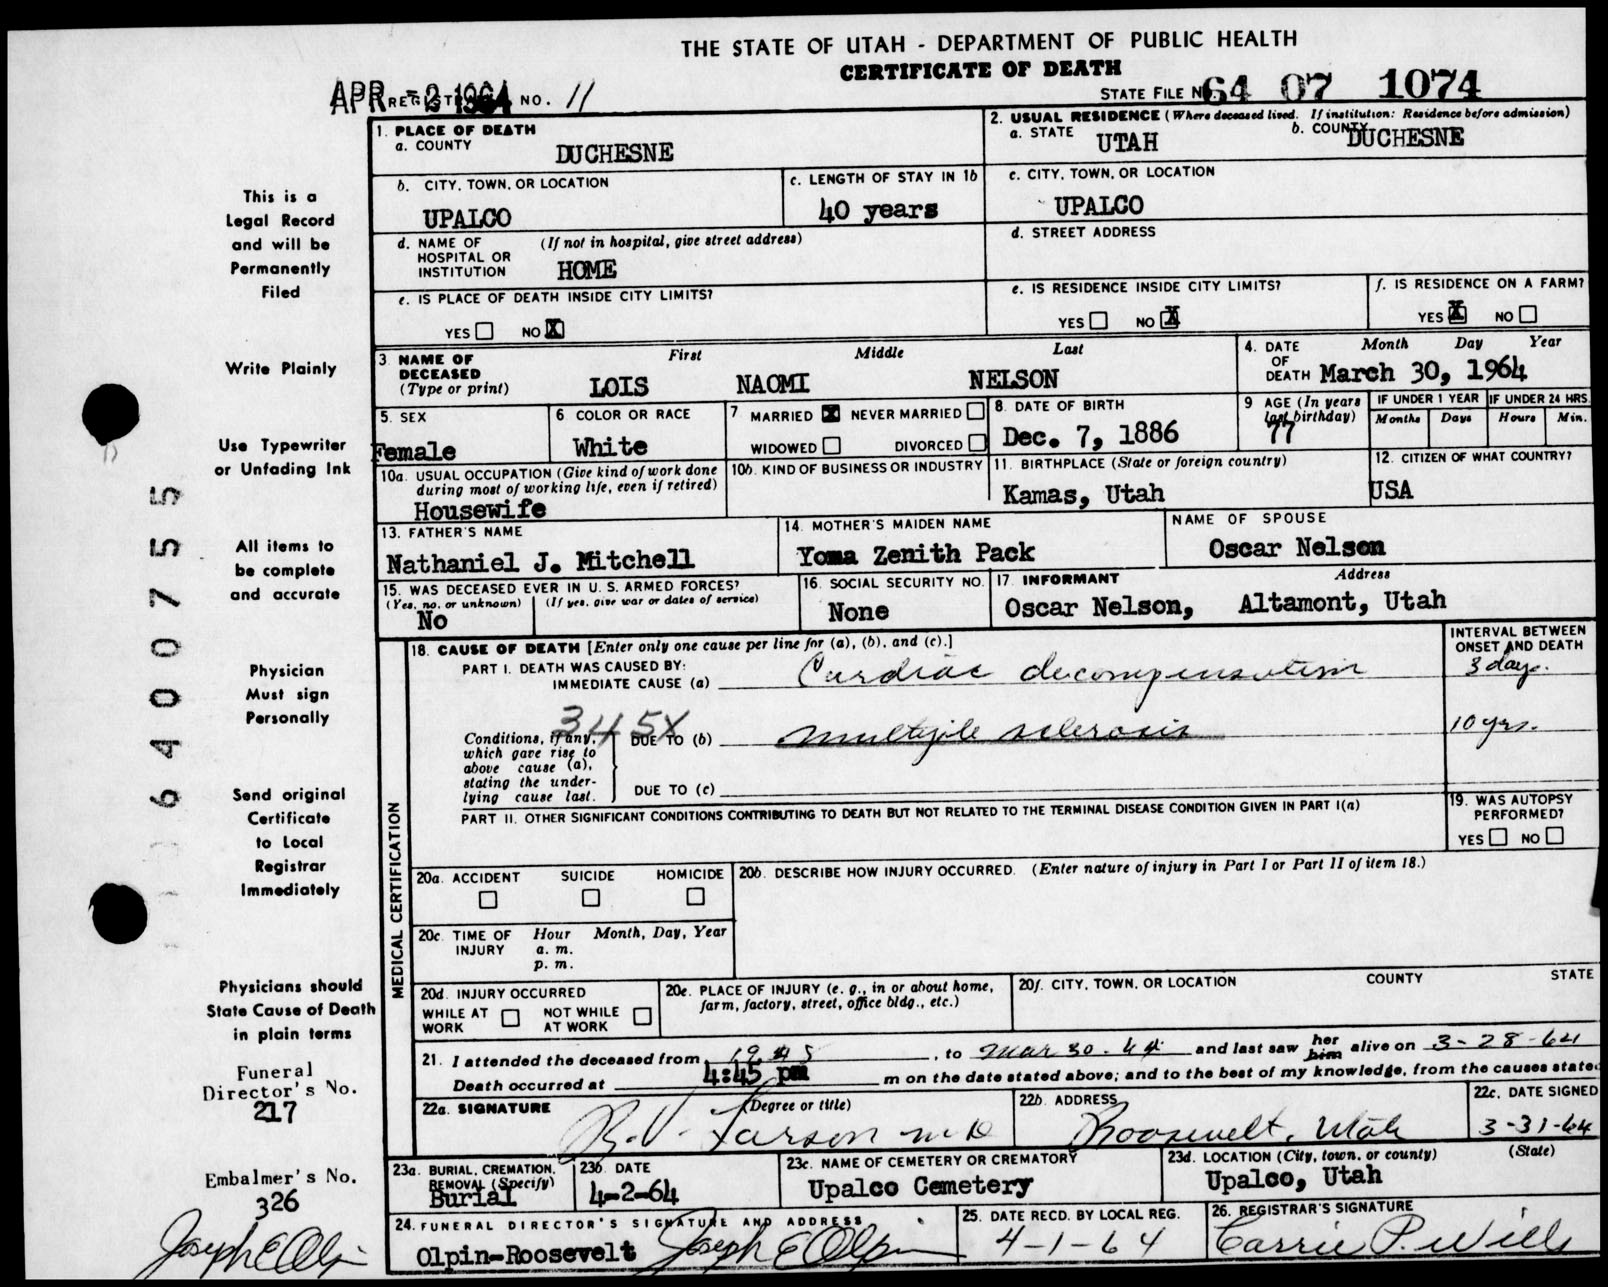 THE STATE OF UTAH - DEPARTMENT OF PUBLIC HEALTH
CERTIFICATE OF DEATH
APR - 2 1964
NO. 11
STATE FILE NO. 64 07 1074
1. PLACE OF DEATH
a. COUNTY
DUCHESNE
2. USUAL RESIDENCE (Where deceased lived. If institution: Residence before admission)
a. STATE UTAH b. COUNTY DUCHESNE
b. CITY, TOWN, OR LOCATION
UPALCO
c. LENGTH OF STAY IN 1b
40 years
c. CITY, TOWN, OR LOCATION
UPALCO
d. NAME OF HOSPITAL OR INSTITUTION (If not in hospital, give street address)
HOME
d. STREET ADDRESS
e. IS PLACE OF DEATH INSIDE CITY LIMITS?
YES NO X
e. IS RESIDENCE INSIDE CITY LIMITS?
YES NO X
f. IS RESIDENCE ON A FARM?
YES X NO
3 NAME OF DECEASED (Type or print)
First Middle Last
LOIS NAOMI NELSON
4. DATE OF DEATH Month Day Year
March 30, 1964
5. SEX
Female
6 COLOR OR RACE
White
7 MARRIED X NEVER MARRIED
WIDOWED DIVORCED
8. DATE OF BIRTH
Dec. 7, 1886
9 AGE (In years last birthday)
77
IF UNDER 1 YEAR
Months Days
IF UNDER 24 HRS.
Hours Min.
10a. USUAL OCCUPATION (Give kind of work done during most of working life, even if retired)
Housewife
10b. KIND OF BUSINESS OR INDUSTRY
11. BIRTHPLACE (State or foreign country)
Kamas, Utah
12. CITIZEN OF WHAT COUNTRY?
USA
13. FATHER'S NAME
Nathaniel J. Mitchell
14. MOTHER'S MAIDEN NAME
Yoma Zenith Pack
NAME OF SPOUSE
Oscar Nelson
15. WAS DECEASED EVER IN U. S. ARMED FORCES?
(Yes, no, or unknown) (If yes, give war or dates of service)
No
16. SOCIAL SECURITY NO.
None
17. INFORMANT Address
Oscar Nelson, Altamont, Utah
MEDICAL CERTIFICATION
18. CAUSE OF DEATH [Enter only one cause per line for (a), (b), and (c).]
PART I. DEATH WAS CAUSED BY:
IMMEDIATE CAUSE (a) Cardiac decompensation
INTERVAL BETWEEN ONSET AND DEATH
3 days.
345X
Conditions, if any, which gave rise to above cause (a), stating the underlying cause last.
DUE TO (b) multiple sclerosis
10 yrs.
DUE TO (c)
PART II. OTHER SIGNIFICANT CONDITIONS CONTRIBUTING TO DEATH BUT NOT RELATED TO THE TERMINAL DISEASE CONDITION GIVEN IN PART I(a)
19. WAS AUTOPSY PERFORMED?
YES NO
20a. ACCIDENT SUICIDE HOMICIDE
20b. DESCRIBE HOW INJURY OCCURRED. (Enter nature of injury in Part I or Part II of item 18.)
20c. TIME OF INJURY Hour Month, Day, Year
a. m.
p. m.
20d. INJURY OCCURRED
WHILE AT WORK NOT WHILE AT WORK
20e. PLACE OF INJURY (e. g., in or about home, farm, factory, street, office bldg., etc.)
20f. CITY, TOWN, OR LOCATION COUNTY STATE
21. I attended the deceased from 1945, to Mar 30 - 64 and last saw her him alive on 3-28-64
Death occurred at 4:45 pm m on the date stated above; and to the best of my knowledge, from the causes stated
22a. SIGNATURE (Degree or title)
R.V. Larson M D
22b. ADDRESS
Roosevelt, Utah
22c. DATE SIGNED
3-31-64
23a. BURIAL, CREMATION, REMOVAL (Specify)
Burial
23b. DATE
4-2-64
23c. NAME OF CEMETERY OR CREMATORY
Upalco Cemetery
23d. LOCATION (City, town, or county) (State)
Upalco, Utah
24. FUNERAL DIRECTOR'S SIGNATURE AND ADDRESS
Olpin-Roosevelt Joseph E Olpin
25. DATE RECD. BY LOCAL REG.
4-1-64
26. REGISTRAR'S SIGNATURE
Carrie P. Wills
This is a
Legal Record
and will be
Permanently
Filed
Write Plainly
Use Typewriter
or Unfading Ink
All items to
be complete
and accurate
Physician
Must sign
Personally
Send original
Certificate
to Local
Registrar
Immediately
Physicians should
State Cause of Death
in plain terms
Funeral
Director's No.
217
Embalmer's No.
326
Joseph E Olpin
6400755